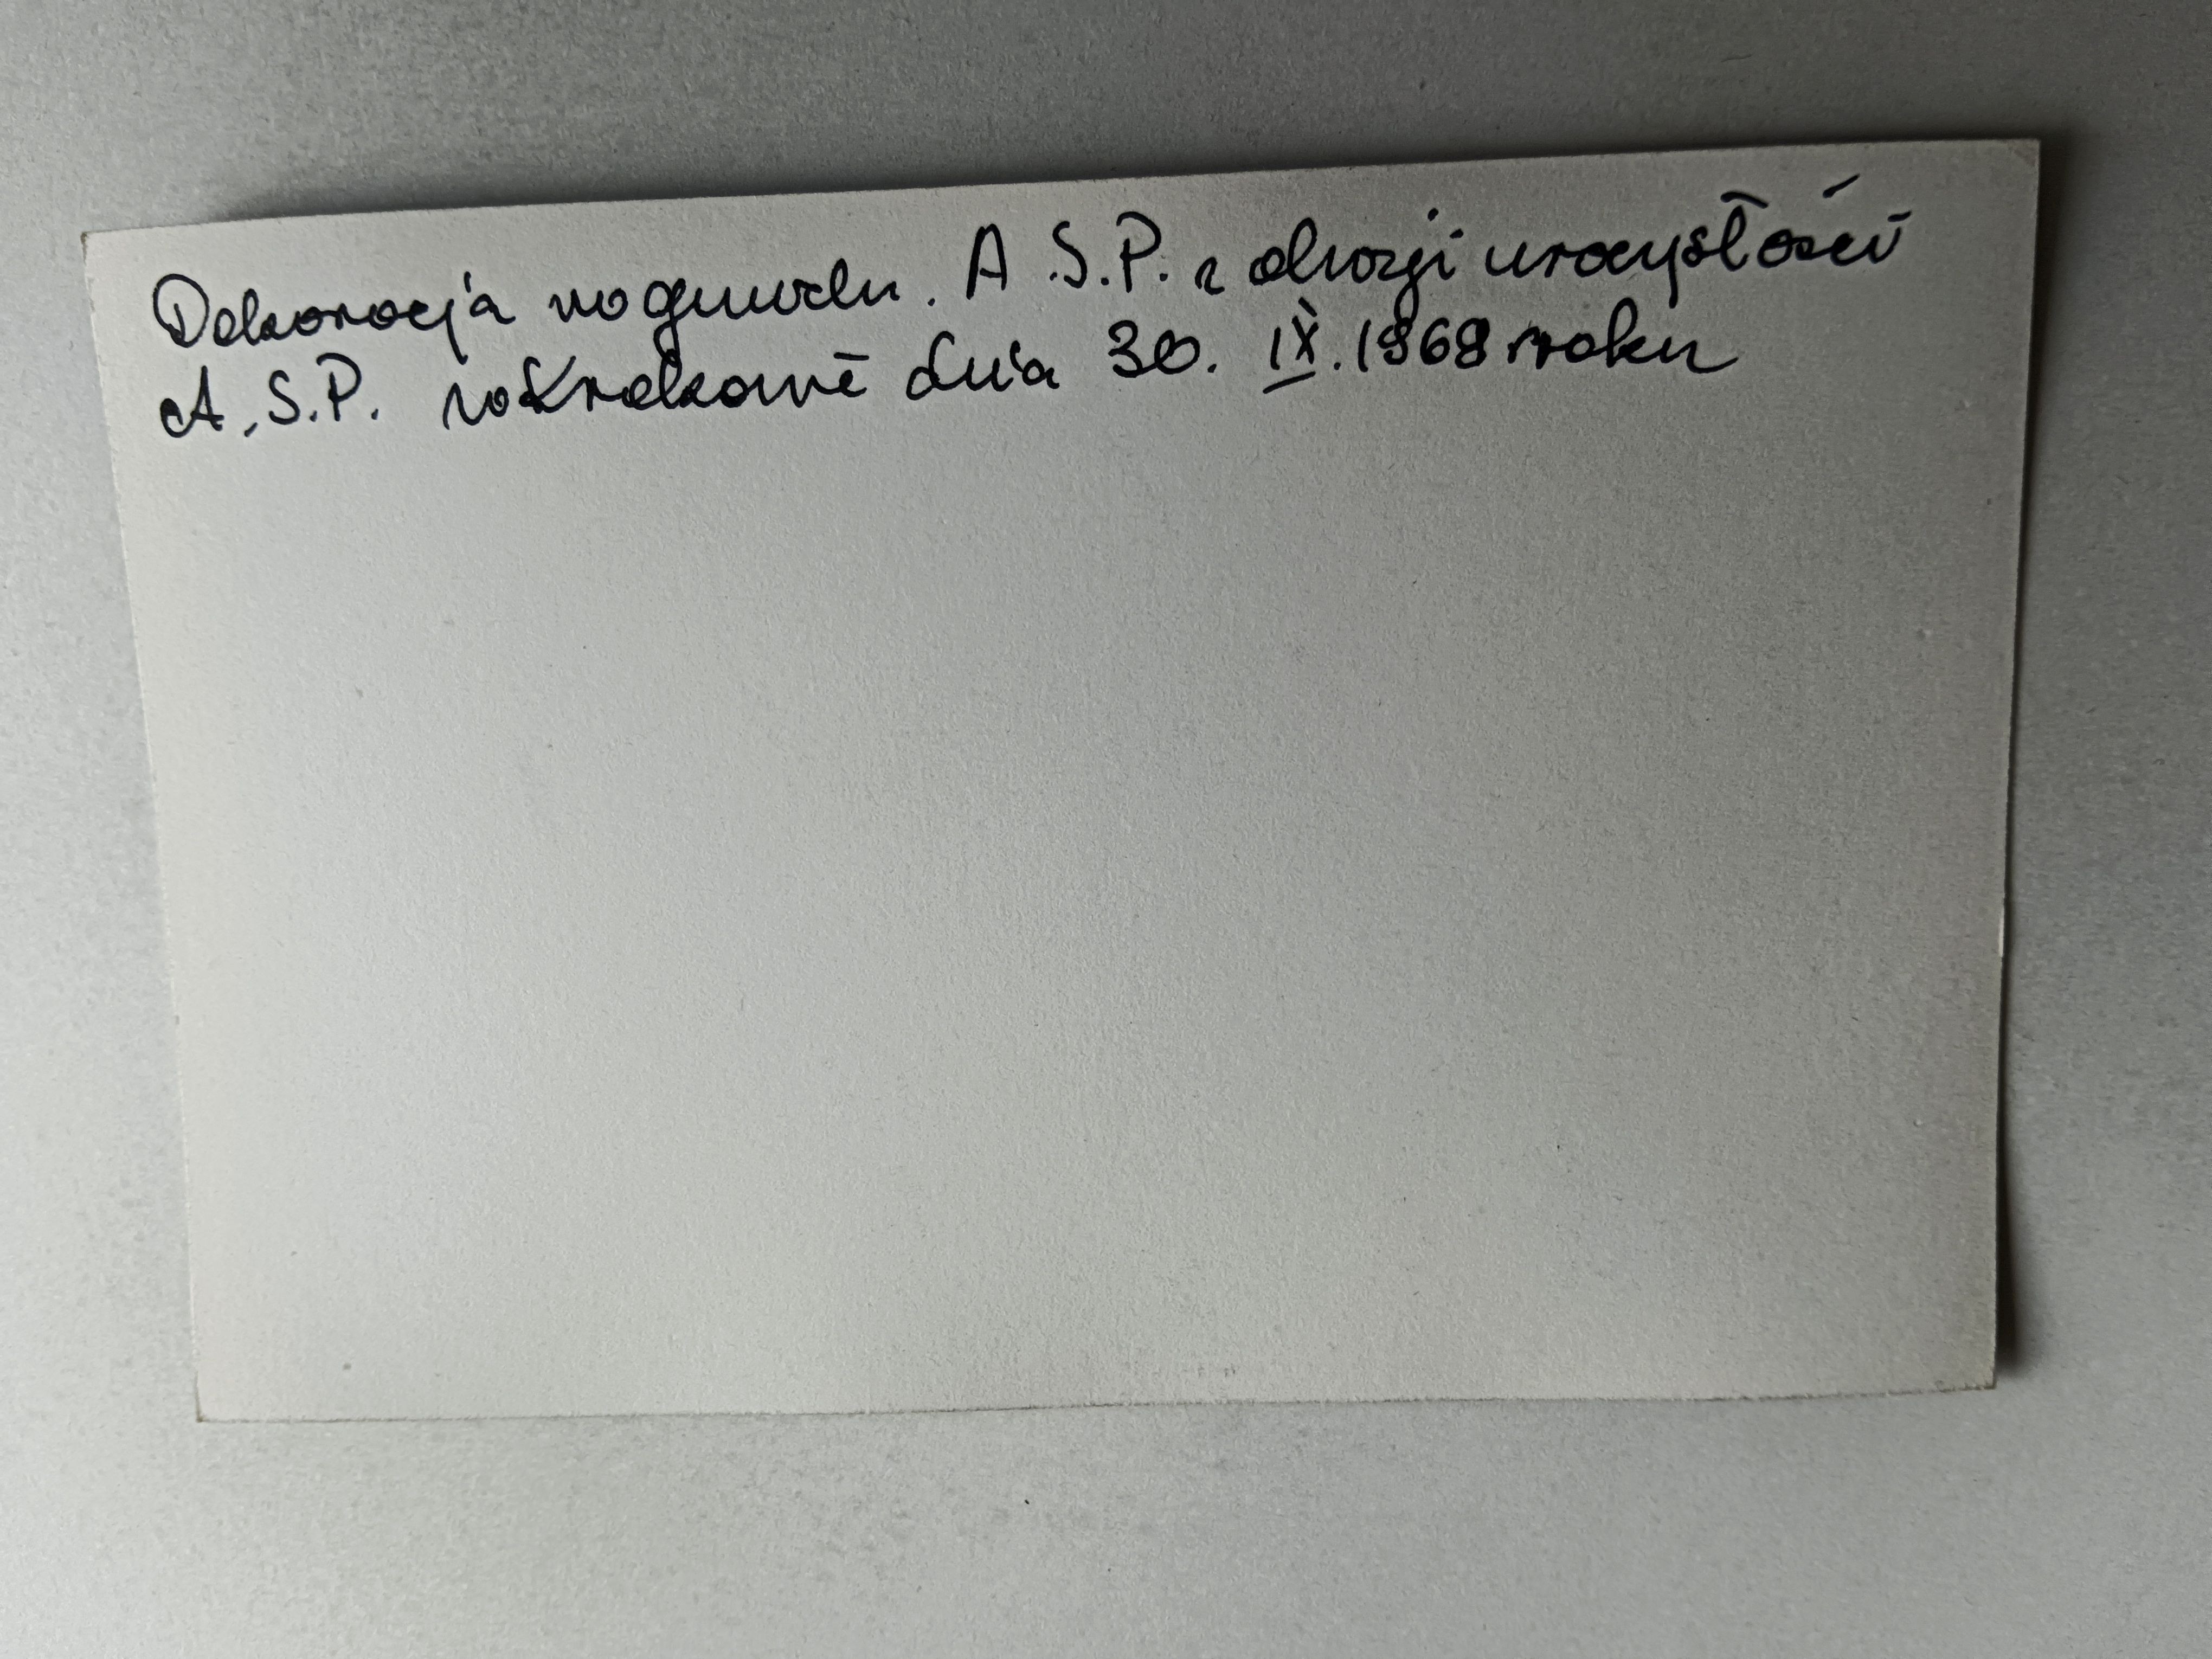 Dekoracja w gmachu. A.S.P. z okazji uroczystości
A.S.P. w Krakowie dnia 30. IX. 1969 roku